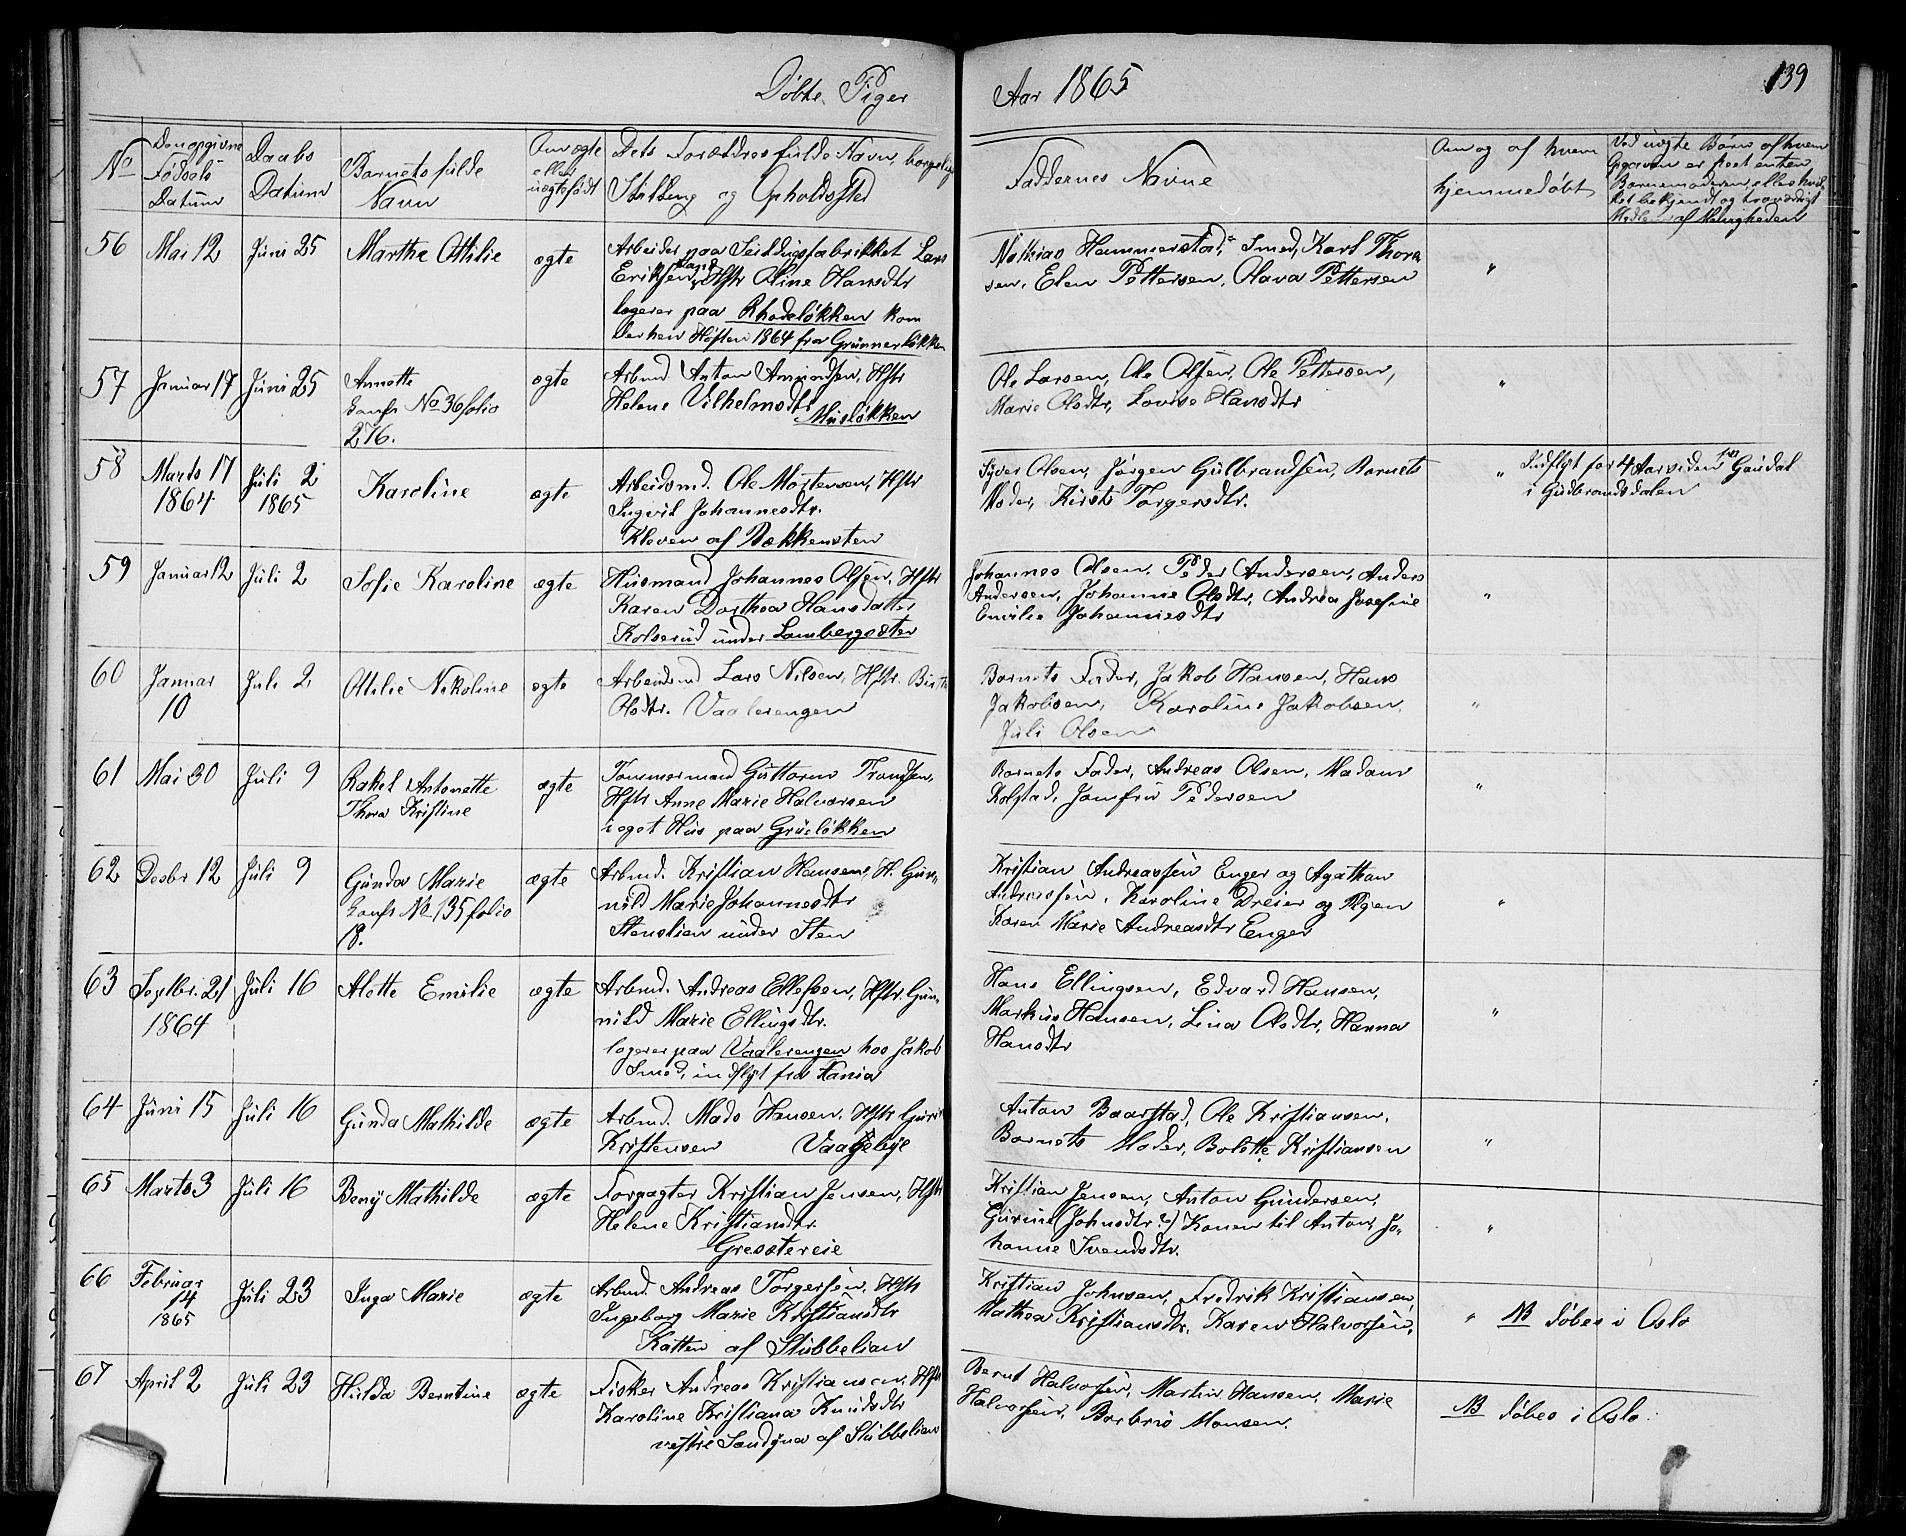 Döbte Piger
Aar 1865
139
No
Den opgivne Fødsels Datum
Daabs Datum
Barnets fulde Navn
Om ægte eller uægtefødt
Dets Forældres fulde Navn, borgerlig Stilling og Opholdssted
Faddernes Navne
Om og af hvem hjemmedøbt
Ved uægte Børn af hvem
Opgaven er skeet enten
Barnemoderen eller
bekjendt og troværdigt
af Menigheden
56 Mai 12 Juni 25 Martha Ottilie ægte
Arbeider paa Seildugsfabrikket Lars
Eriksen, Hstr Oline Hansdtr
logerer paa Rhodeløkken kom
derhen Høsten 1864 fra Grünnerløkken
Mathias Hammerstad, Smed, Karl Thorn
sen, Elen Pettersen, Olava Pettersen
"
57 Januar 17 Juni 25 Annette
Confr No 36 folio
276.
ægte
Arbmd Anton Amundsen, Hstr
Helene Vilhelmsdtr
Musløkken
Ole Larsen, Ole Olsen, Ole Pettersen,
Marie Olsdtr, Lovise Hansdtr
"
58 Marts 17
1864
Juli 2
1865
Karoline ægte
Arbeidsmd. Ole Mortensen, Hstr
Ingeril Johannesdtr.
Kloven af Bækkensten
Syver Olsen, Jørgen Gulbrandsen, Barnets
Moder, Kirsti Torgersdtr.
" Indflyt for 4 Aar siden fra Gausdal
i Gudbrandsdalen
59 Januar 12 Juli 2 Sofie Karoline ægte
Husmand Johannes Olsen, Hstr
Karen Dorthea Hansdatter
Kolserud under Lambergseter
Johannes Olsen, Peder Andersen, Anders
Andersen, Johanne Olsdtr, Andrea Josefine
Emilie Johannesdtr
"
60 Januar
10
Juli 2 Ottilie Nikoline ægte
Arbeidsmd Lars Nilsen, Hstr.
Olsdtr. Vaalerengen
Barnets Fader, Jakob Hansen, Hans
Jakobsen, Karoline Jakobsen,
Juli Olsen
"
61 Mai 30 Juli 9 Rakel Antonette
Thora Kristine
ægte
Tømmermand Guttorm Trondsen,
Hstr Anne Marie Halvorsen
i eget Hus paa Grüeløkken
Barnets Fader, Andreas Olsen, Madam
Kolstad, Jomfru Pedersen
"
62 Desbr 12 Juli 9 Gunda Marie
Confr No 135 folio
18.
ægte
Arbmd. Kristian Hansen, H. Gun-
nild Marie Johannesdtr
Stenslien under Sten
Kristian Andreassen Enger og Agathon
Andreassen, Karoline Dreier og Pigen
Karen Marie Andreasdtr Enger
"
63 Septbr. 21
1864
Juli 16 Alette Emilie ægte
Arbmd. Andreas Ellefsen, Hstr. Gun-
nild Marie Ellingsdtr.
logerer paa Vaalerengen hos Jakob
Smed, indflyt fra Xania
Hans Ellingsen, Edvard Hansen,
Markus Hansen, Lina Olsdtr, Hanna
Hansdtr
"
64 Juni 15 Juli 16 Gunda Mathilde ægte
Arbmd. Mads Hansen, Hstr
Kristensen
Anton Baarstad, Ole Kristiansen,
Barnets Moder, Bolette Kristiansen
"
65 Marts 3 Juli 16 Beny Mathilde ægte
Forpagter Kristian Jensen, Hstr
Helene Kristiansdtr.
Gresetereie
Kristian Jensen, Anton Gundersen,
Gurine (Johnsdtr?) Konen til Anton, Jo-
hanne Svendsdtr.
"
66 Februar
14
1865
Juli 23 Inga Marie ægte
Arbmd. Andreas Torgersen, Hstr
Ingeborg Marie Kristiansdtr
Katten af Stubbelian
Kristian Johnsen, Fredrik Kristiansen,
Mathea Kristiansdtr, Karen Halvorsen,
" NB Døbes i Oslo
67 April 2 Juli 23 Hulda Berntine ægte
Fisker Andreas Kristiansen, Hstr
Karoline Kristiana Knudsdtr
vestre Sandøua af Stubbelian
Bernt Halvorsen, Martin Hansen, Marie
Halvorsen, Barbrø Monsen.
NB Døbes i Oslo.